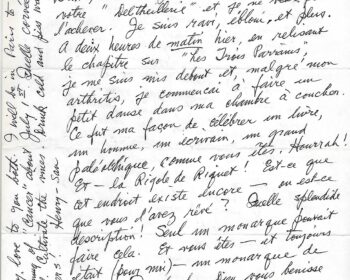 votre "Deltheillerie" et j'ne
l'achever. Je suis ravi, ébloui, et plus.
A deux heures de matin hier, en relisant
le chapitre sur "Les Trois Parrains,"
je me suis mis debout et, malgré mon
arthritis, je commençai à faire un
petit danse dans ma chambre à coucher.
Ce fut ma façon de célébrer un livre,
un homme, un écrivain, un grand
paléolithique, comme vous êtes. Hourrah!
Et — la Rigole de Riquet! Est-ce que
cet endroit existe encore — ou est-ce
que vous l'avez rêvé? Quelle splendide
description! Seul un monarque pouvait
faire cela. Et vous êtes — et toujours
était (pour moi) — un monarque de
Dieu vous bénisse
My love to you both. I will be in Paris to
"Lance" about July 1st Quelle corvée!
drunk and
Henry San